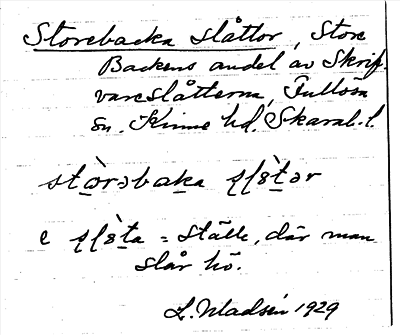 Storebacka slåttor, Store
Backens andel av Skrif-
vareslåtterna, Fullösa
sn. Kinne hd. Skarab. l.
stòrəbaka slåtər
e slåta = ställe, där man
slår hö.
1929